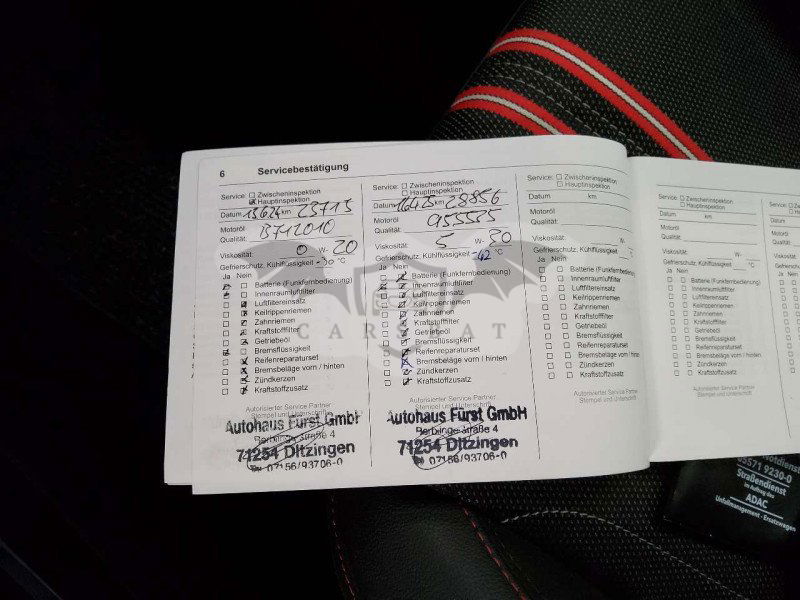 6 Servicebestätigung
Service: Zwischeninspektion
Hauptinspektion
Datum 13624 km 23715
Motoröl
Qualität: B712010
Viskosität: 0 W- 20
Gefrierschutz, Kühlflüssigkeit -30 °C
Ja Nein
Batterie (Funkfernbedienung)
Innenraumluftfilter
Luftfiltereinsatz
Keilrippenriemen
Zahnriemen
Kraftstofffilter
Getriebeöl
Bremsflüssigkeit
Reifenreparaturset
Bremsbeläge vorn / hinten
Zündkerzen
Kraftstoffzusatz
Autorisierter Service Partner
Stempel und Unterschrift
Autohaus Fürst GmbH
71254 Ditzingen
07156/93706-0
Service: Zwischeninspektion
Hauptinspektion
Datum 16425 km 28856
Motoröl
Qualität: 955535
Viskosität: 5 W- 20
Gefrierschutz, Kühlflüssigkeit -42 °C
Ja Nein
Batterie (Funkfernbedienung)
Innenraumluftfilter
Luftfiltereinsatz
Keilrippenriemen
Zahnriemen
Kraftstofffilter
Getriebeöl
Bremsflüssigkeit
Reifenreparaturset
Bremsbeläge vorn / hinten
Zündkerzen
Kraftstoffzusatz
Autorisierter Service Partner
Stempel und Unterschrift
Autohaus Fürst GmbH
71254 Ditzingen
07156/93706-0
Service: Zwischeninspektion
Hauptinspektion
Datum km
Motoröl
Qualität:
Viskosität: W-
Gefrierschutz, Kühlflüssigkeit °C
Ja Nein
Batterie (Funkfernbedienung)
Innenraumluftfilter
Luftfiltereinsatz
Keilrippenriemen
Zahnriemen
Kraftstofffilter
Getriebeöl
Bremsflüssigkeit
Reifenreparaturset
Bremsbeläge vorn / hinten
Zündkerzen
Kraftstoffzusatz
Autorisierter Service Partner
Stempel und Unterschrift
Service: Zwischeninspektion
Hauptinspektion
Datum km
Motoröl
Qualität:
Viskosität: W-
Gefrierschutz, Kühlflüssigkeit °C
Ja Nein
Batterie (Funkfernbedienung)
Innenraumluftfilter
Luftfiltereinsatz
Keilrippenriemen
Zahnriemen
Kraftstofffilter
Getriebeöl
Bremsflüssigkeit
Reifenreparaturset
Bremsbeläge vorn / hinten
Zündkerzen
Kraftstoffzusatz
Autorisierter Service Partner
Stempel und Unterschrift
05571 9230-0
Straßendienst
im Auftrag des
ADAC
Unfallmanagement · Ersatzwagen